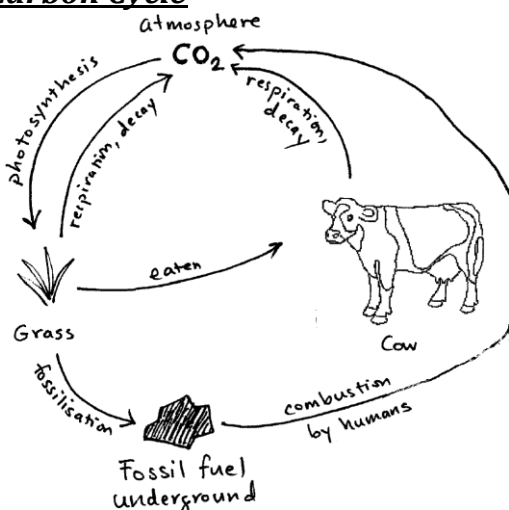 Carbon Cycle
atmosphere
CO₂
photosynthesis
respiration, decay
respiration,
decay
eaten
Grass
Cow
fossilisation
combustion
by humans
Fossil fuel
underground